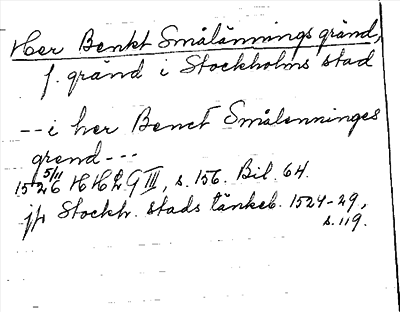 Her Benkt Smålännings gränd,
f. gränd i Stockholms stad
-- i her Benct Smålenninges
grend---
1526 5/11 HH 2 G III, s. 156. Bil. 64.
jfr Stockh. stads tänkeb. 1524-29,
s. 119.